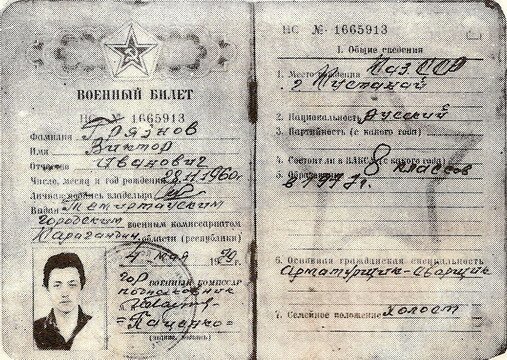 ВОЕННЫЙ БИЛЕТ
НС № 1665913
Фамилия Грязнов
Имя Виктор
Отчество Иванович
Число, месяц и год рождения 28.11.1960г.
Личная подпись владельца
Выдан Темиртауским
городским военным комиссариатом
Карагандин. области (республики)
4 мая 1979г.
Гор ВОЕННЫЙ КОМИССАР
подполковник
(звание, подпись)
НС № 1665913
I. Общие сведения
1. Место рождения Каз. ССР
г Кустанай
2. Национальность Русский
3. Партийность (с какого года)
4. Состоит ли в ВЛКСМ (с какого года)
5. Образование 8 классов
в 1977 г.
6. Основная гражданская специальность
Арматурщик-сварщик
7. Семейное положение холост